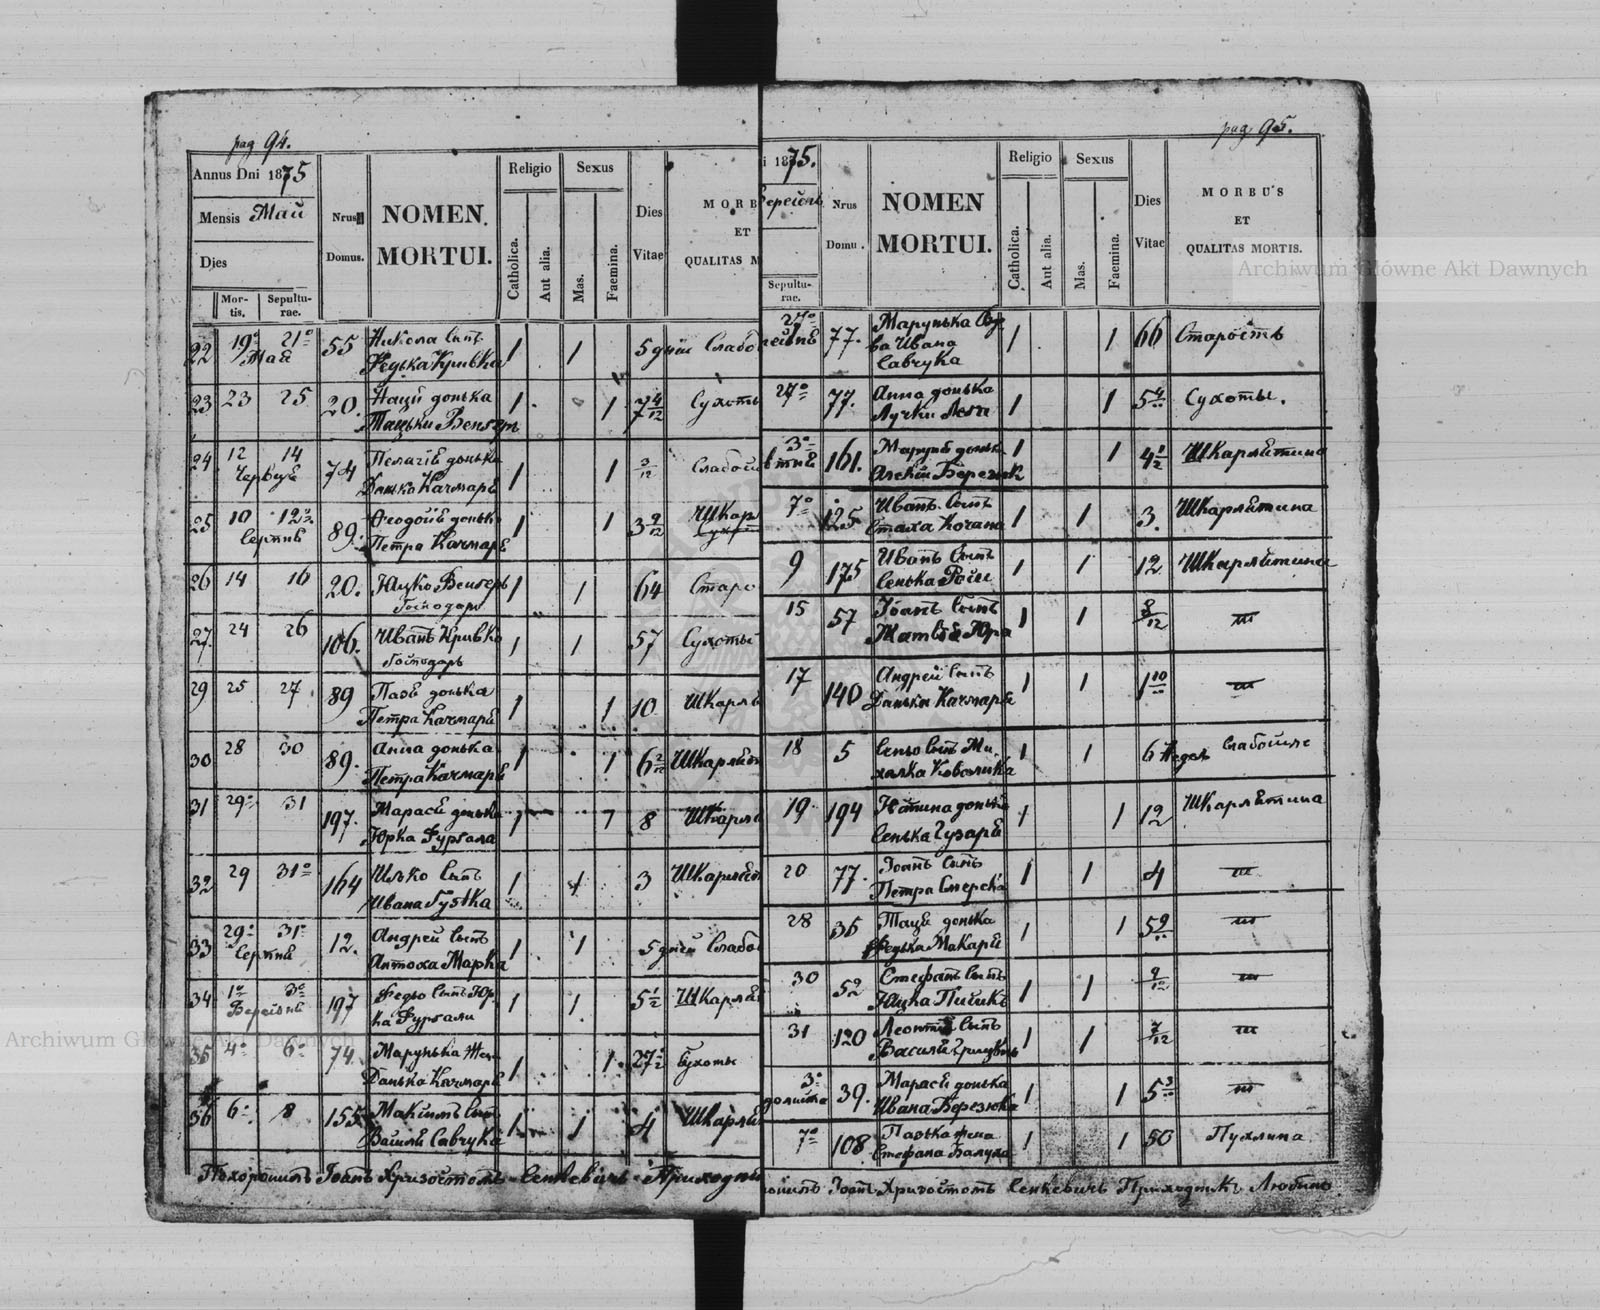 pag 94.
Annus Dni 1875
Mensis Май
Dies
Mor-
tis.
Sepultu-
rae.
Nrus
Domus.
NOMEN
MORTUI.
Religio
Catholica.
Aut alia.
Sexus
Mas.
Faemina.
Dies
Vitae
MORB
ET
QUALITAS M
22 19° 21° 55 Никола сынъ 1 1 5 дній Слабо
Мая Федька Кривка
23 23 25 20. донька 1 1 7 4/12 Сухоты
Венгеръ
24 12 14 74 донька 1 1 3/12 Слабой
Червця Данька Качмаря
25 10 12° 89. донька 1 1 3 9/12 Шкар
Серпня Петра Качмаря
26 14 16 20. Яцко Венгеръ 1 1 64 Старо
Господарь
27. 24 26 106. Иванъ Кривко 1 1 57 Сухоты
Господарь
29 25 27 89 Пазя донька 1 1 10 Шкарля
Петра Качмаря
30 28 30 89. Анна донька 1 1 6 2/12 Шкарля
Петра Качмаря
31 29° 31 197. Марася донька 1 1 8 Шкарля
Юрка Фургала
32 29 31° 164 Илько сынъ 1 1 3 Шкарля
Ивана
33 29° 31° 12. Андрей сынъ 1 1 5 дней Слабо
Серпня Антоха Марка
34 1° 3° 197 Федьо сынъ Юр 1 1 5 1/2 Шкарля
ка Фургали
35 4° 6° 74. Марунька жена 1 1 27 1/2 Сухоты
Данька Качмаря
36 6° 8 155 Максимъ сынъ 1 1 4 Шкарля
Василя Савчука
Похоронилъ Іоанъ Хризостомъ Сенкевичъ Приходн
pag 95.
i 1875.
Sepultu-
rae.
Nrus
Domu.
NOMEN
MORTUI.
Religio
Catholica.
Aut alia.
Sexus
Mas.
Faemina.
Dies
Vitae
MORBUS
ET
QUALITAS MORTIS.
27° 77. Марунька вдо 1 1 66 Старость
ва Ивана
Савчука
27° 77. Анна донька 1 1 5 4/12 Сухоты.
3° 161. донька 1 1 4 1/2 Шкарлятина
7° 125 Иванъ сынъ 1 1 3. Шкарлятина
Стаха Кочана
9 175 Иванъ сынъ 1 1 12 Шкарлятина
Сенька
15 57 Іоанъ сынъ 1 1 8/12 "
Матвѣя Юра
17 140 Андрей сынъ 1 1 1 10/12 "
Данька Качмаря
18 5 Сеньо сынъ Ми- 1 1 6 недел Слабой
халка Ковалика
19. 194 донька 1 1 12 Шкарлятина
Сенька Гузаря
20 77. Іоанъ сынъ 1 1 4 "
Петра
28 35 Тація донька 1 1 5 9/12 "
Федька Макара
30 52 Стефанъ сынъ 1 1 9/12 "
Яцка
31 120 сынъ 1 1 7/12 "
Василя
3° 39. Марася донька 1 1 5 3/12 "
Ивана Березюка
7° 108 Пазька жена 1 1 50 Пухлина
Стефана
Іоанъ Хризостомъ Сенкевичъ Приходникъ
Archiwum Główne Akt Dawnych
Archiwum Główne Akt Dawnych